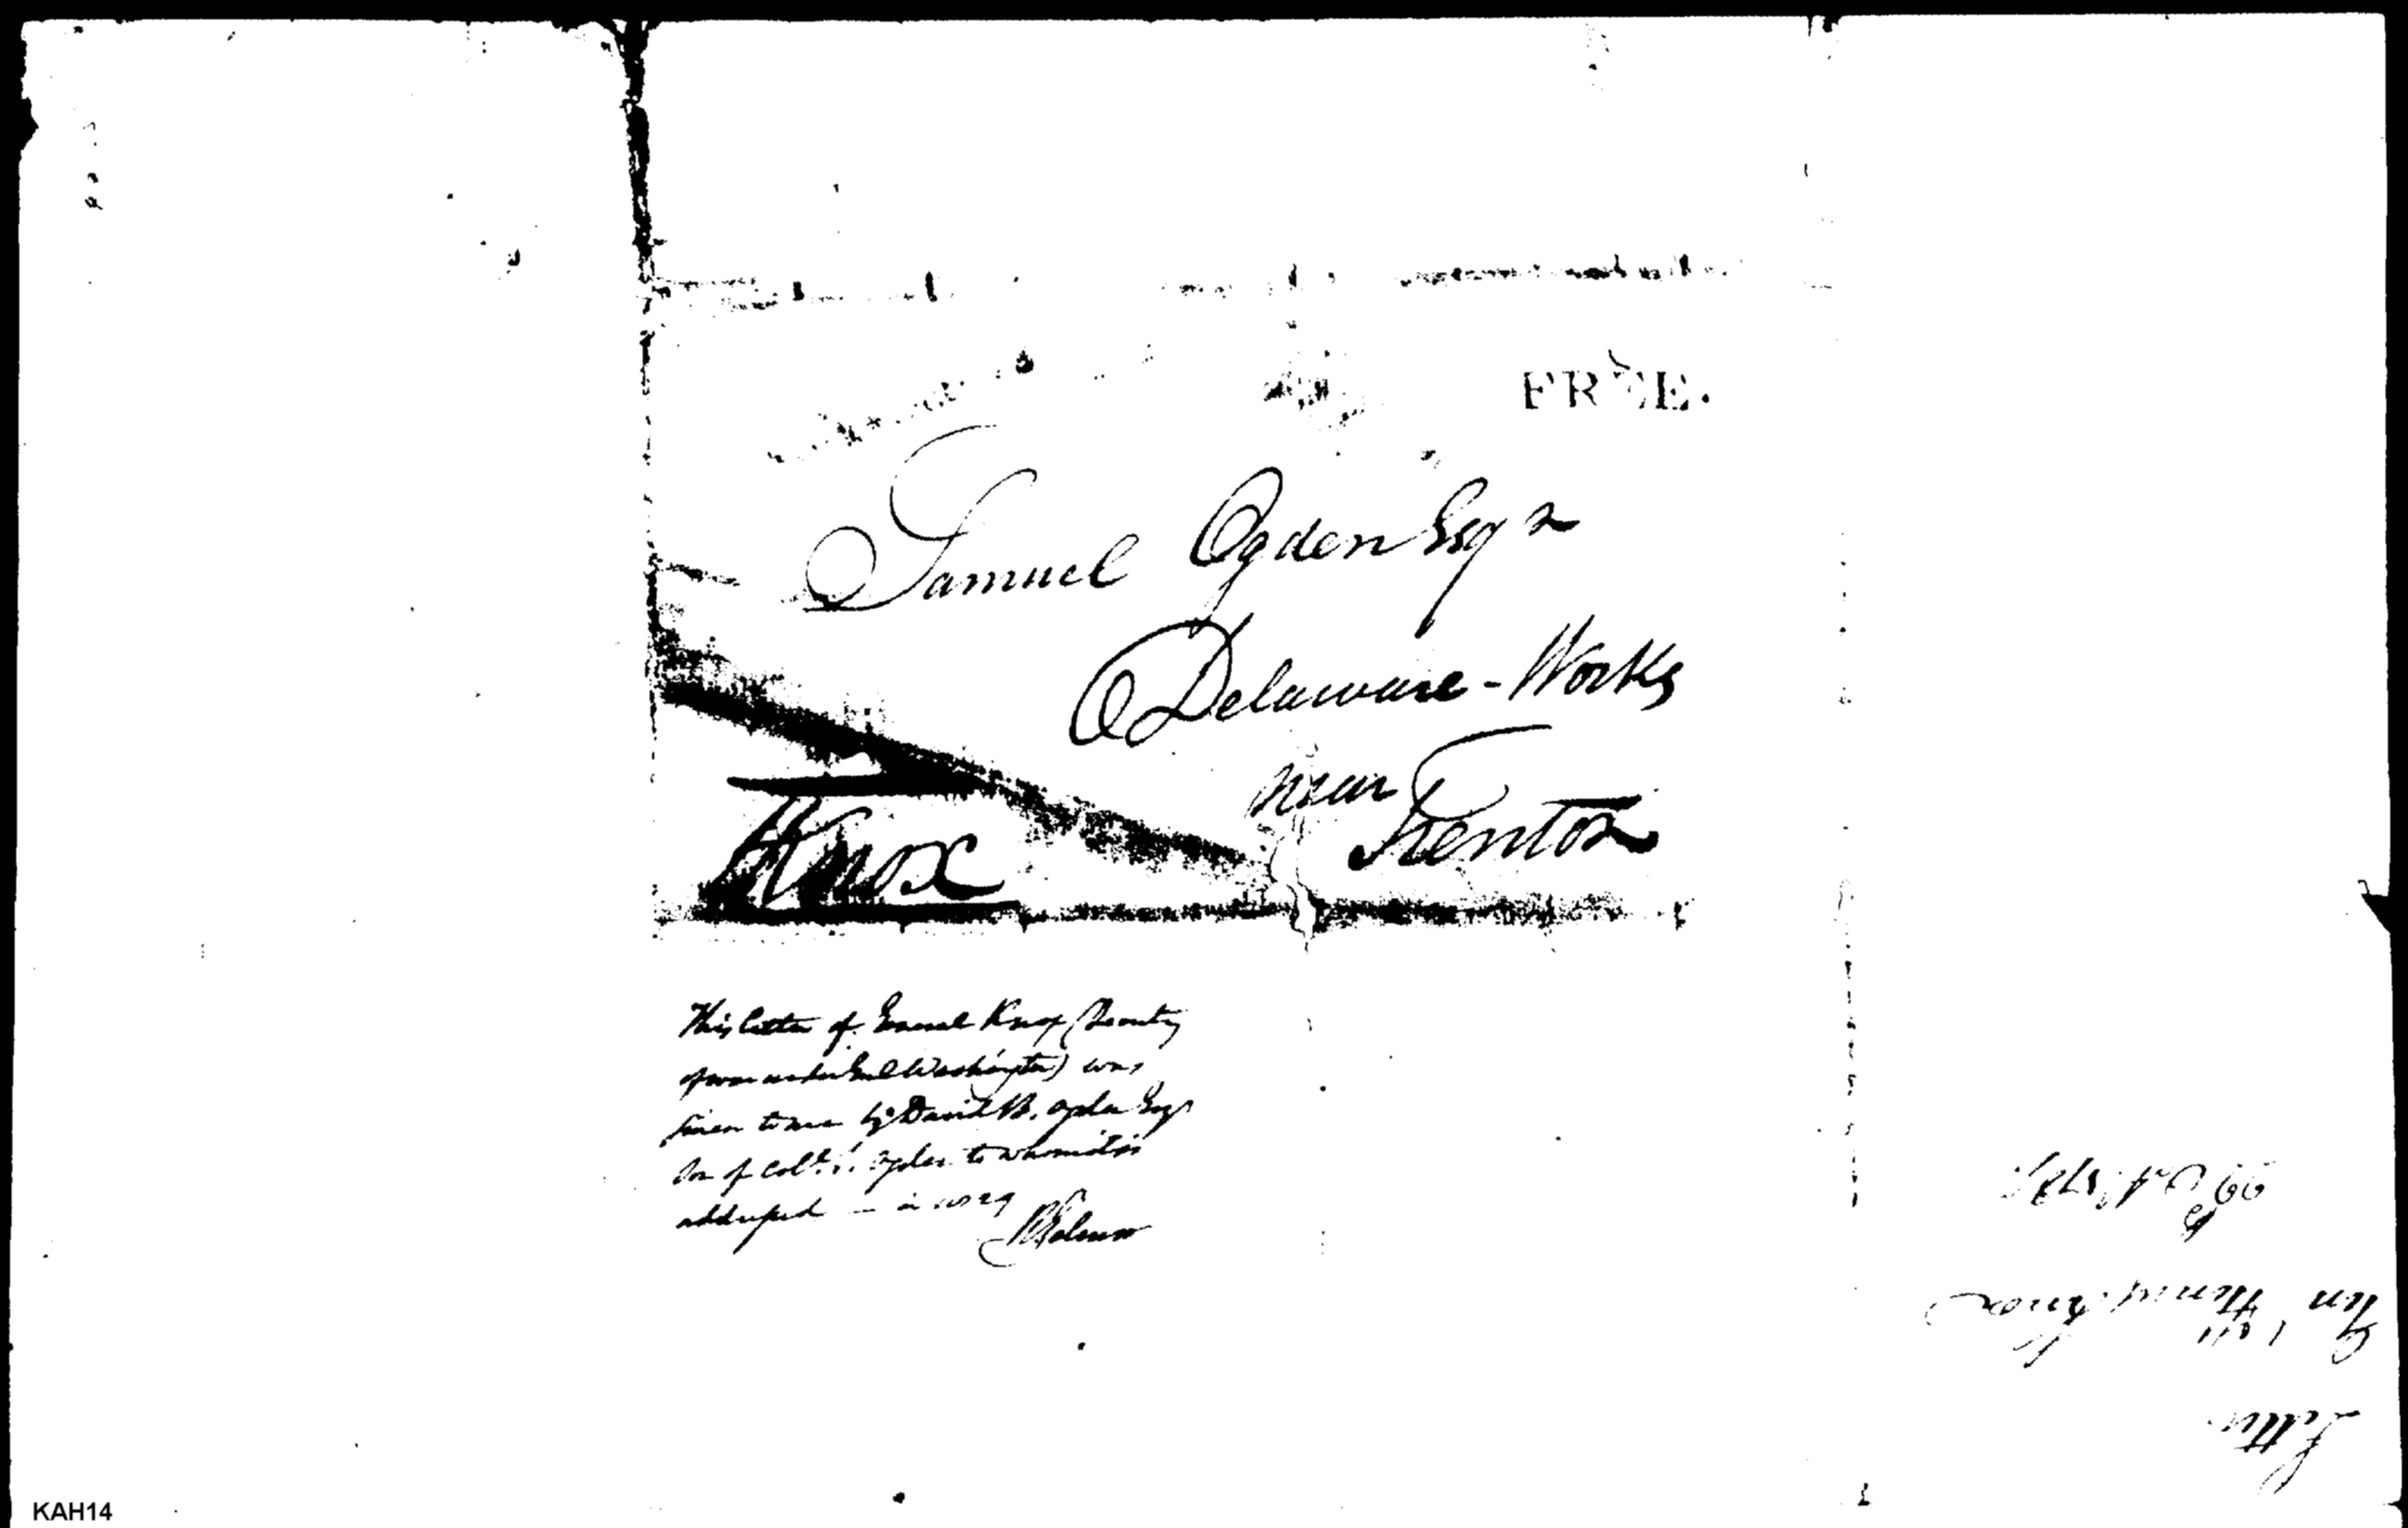 FREE.
Samuel Ogden Esqr
Delaware-Works
near
Trenton
HKnox
This letter of General Knox (Secretary
of war under Genl Washington) was
Given to me by David B. Ogden Esqr
Son of Coll. Ogden to whom it is
addressed — in
Letter
Gen Henry Knox
KAH14